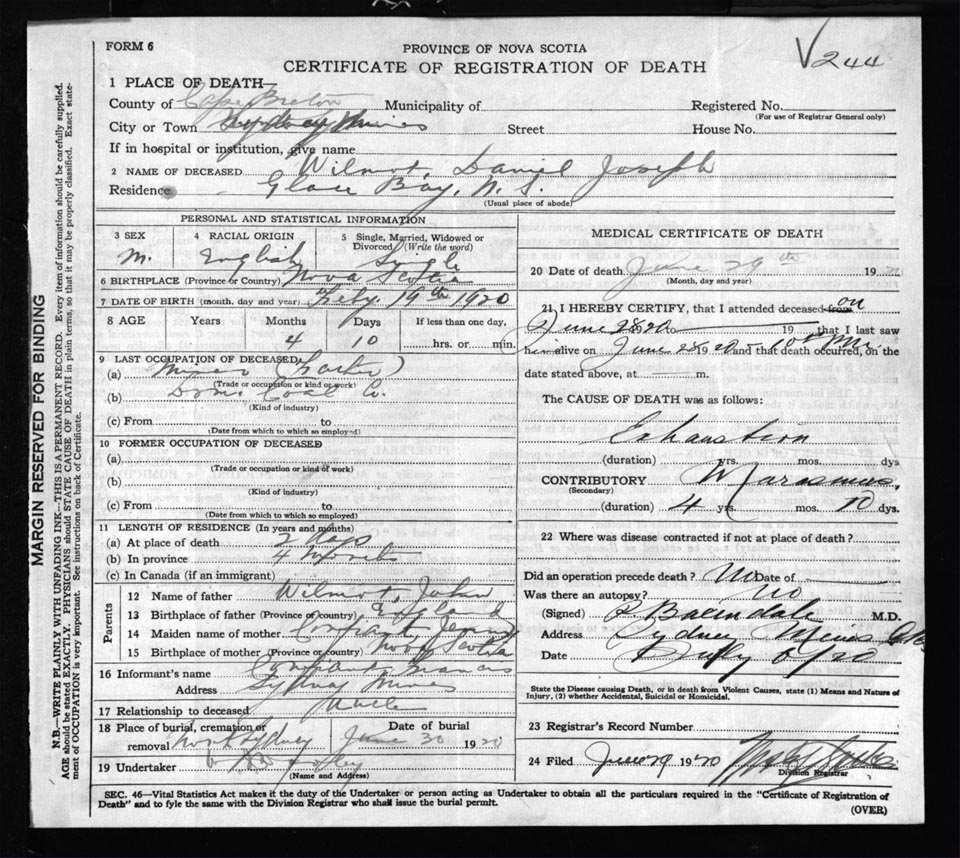 FORM 6
PROVINCE OF NOVA SCOTIA
CERTIFICATE OF REGISTRATION OF DEATH
V244
1 PLACE OF DEATH—
County of Cape Breton Municipality of Registered No.
(For use of Registrar General only)
City or Town Sydney Mines Street House No.
If in hospital or institution, give name
2 NAME OF DECEASED Wilmot, Daniel Joseph
Residence Glace Bay, N. S.
(Usual place of abode)
PERSONAL AND STATISTICAL INFORMATION
3 SEX 4 RACIAL ORIGIN 5 Single, Married, Widowed or Divorced (Write the word)
M. English Single
6 BIRTHPLACE (Province or Country) Nova Scotia
7 DATE OF BIRTH (month, day and year) Feby. 19th 1920
8 AGE Years Months Days If less than one day,
4 10 hrs. or min.
9 LAST OCCUPATION OF DECEASED
(a) Miner
(Trade or occupation or kind of work)
(b) Dom. Coal Co.
(Kind of industry)
(c) From to
(Date from which to which so employed)
10 FORMER OCCUPATION OF DECEASED
(a)
(Trade or occupation or kind of work)
(b)
(Kind of industry)
(c) From to
(Date from which to which so employed)
11 LENGTH OF RESIDENCE (In years and months)
(a) At place of death 2 days
(b) In province 4 months
(c) In Canada (if an immigrant)
Parents
12 Name of father Wilmot, John
13 Birthplace of father (Province or Country) England
14 Maiden name of mother
15 Birthplace of mother (Province or country) Nova Scotia
16 Informant's name
Address Sydney Mines
17 Relationship to deceased Uncle
18 Place of burial, cremation or removal North Sydney Date of burial June 30 1920
19 Undertaker
(Name and Address)
MEDICAL CERTIFICATE OF DEATH
20 Date of death June 29th 1920
(Month, day and year)
21 I HEREBY CERTIFY, that I attended deceased from on
June 28 20 to 19 that I last saw
him alive on June 28 1920 and that death occurred, on the
date stated above, at m.
The CAUSE OF DEATH was as follows:
Exhaustion
(duration) yrs. mos. dys
CONTRIBUTORY Marasmus
(Secondary)
(duration) 4 yrs. mos. 10 dys.
22 Where was disease contracted if not at place of death?
Did an operation precede death? No Date of
Was there an autopsy? No
(Signed) M.D.
Address Sydney Mines
Date
State the Disease causing Death, or in death from Violent Causes, state (1) Means and Nature of
Injury, (2) whether Accidental, Suicidal or Homicidal.
23 Registrar's Record Number
24 Filed June 29 1920
Division Registrar
SEC. 46—Vital Statistics Act makes it the duty of the Undertaker or person acting as Undertaker to obtain all the particulars required in the "Certificate of Registration of
Death" and to fyle the same with the Division Registrar who shall issue the burial permit.
(OVER)
MARGIN RESERVED FOR BINDING
N.B.—WRITE PLAINLY WITH UNFADING INK—THIS IS A PERMANENT RECORD. Every item of information should be carefully supplied.
AGE should be stated EXACTLY. PHYSICIANS should STATE CAUSE OF DEATH in plain terms, so that it may be properly classified. Exact state-
ment of OCCUPATION is very important. See instructions on back of Certificate.